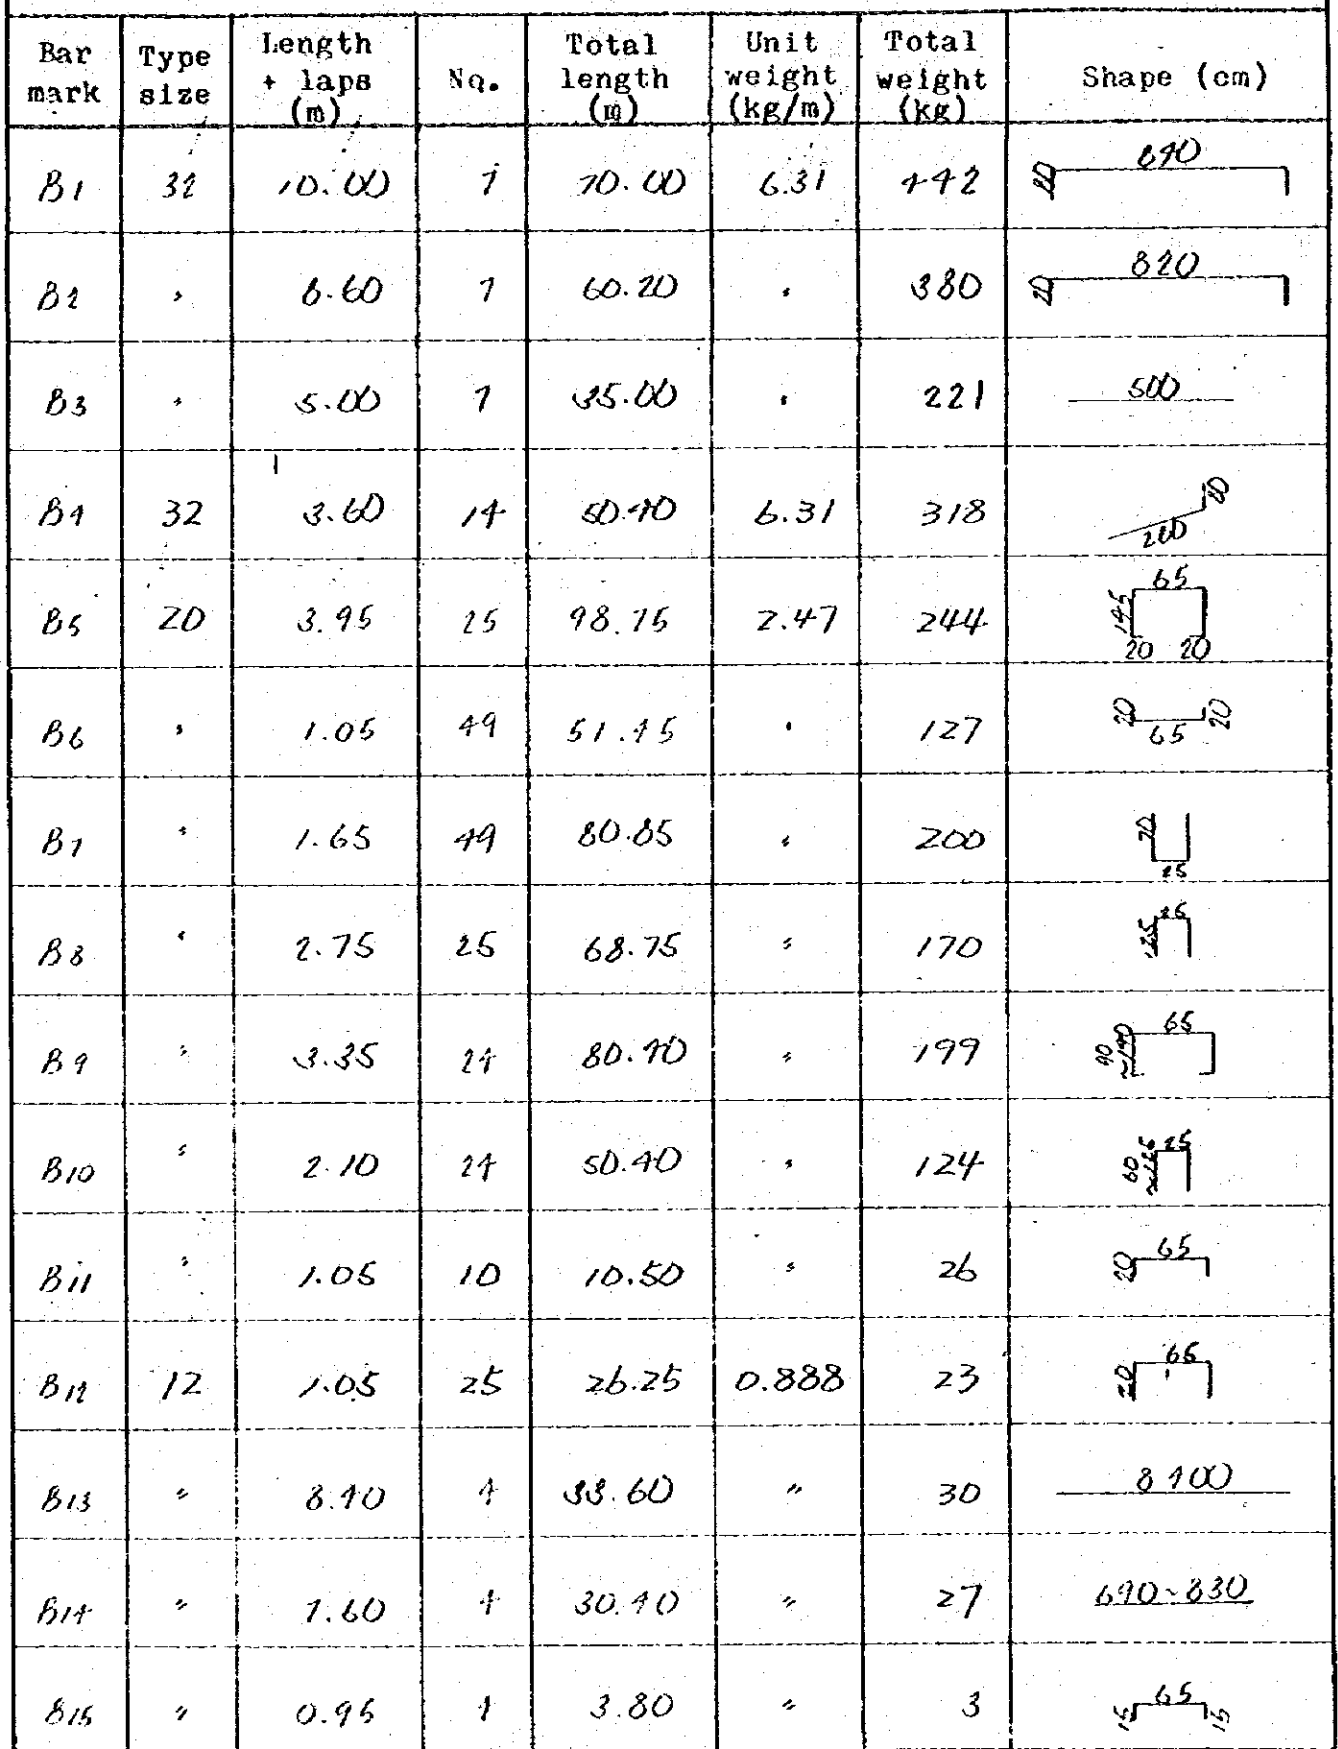 Bar mark Type size Length + laps (m) No. Total length (m) Unit weight (kg/m) Total weight (kg) Shape (cm)
B1 32 10.00 7 70.00 6.31 442 80 840
B2 〃 8.60 7 60.20 〃 380 20 820
B3 〃 5.00 7 35.00 〃 221 500
B4 32 3.60 14 50.40 6.31 318 280 80
B5 20 3.95 25 98.75 2.47 244 145 65 20 20
B6 〃 1.05 49 51.45 〃 127 20 65 20
B7 〃 1.65 49 80.85 〃 200 70 25
B8 〃 2.75 25 68.75 〃 170 125 25
B9 〃 3.35 24 80.40 〃 199 90 65
B10 〃 2.10 24 50.40 〃 124 60 25
B11 〃 1.05 10 10.50 〃 26 20 65
B12 12 1.05 25 26.25 0.888 23 20 65
B13 〃 8.40 4 33.60 〃 30 8400
B14 〃 7.60 4 30.40 〃 27 690~830
B15 〃 0.95 4 3.80 〃 3 15 65 15